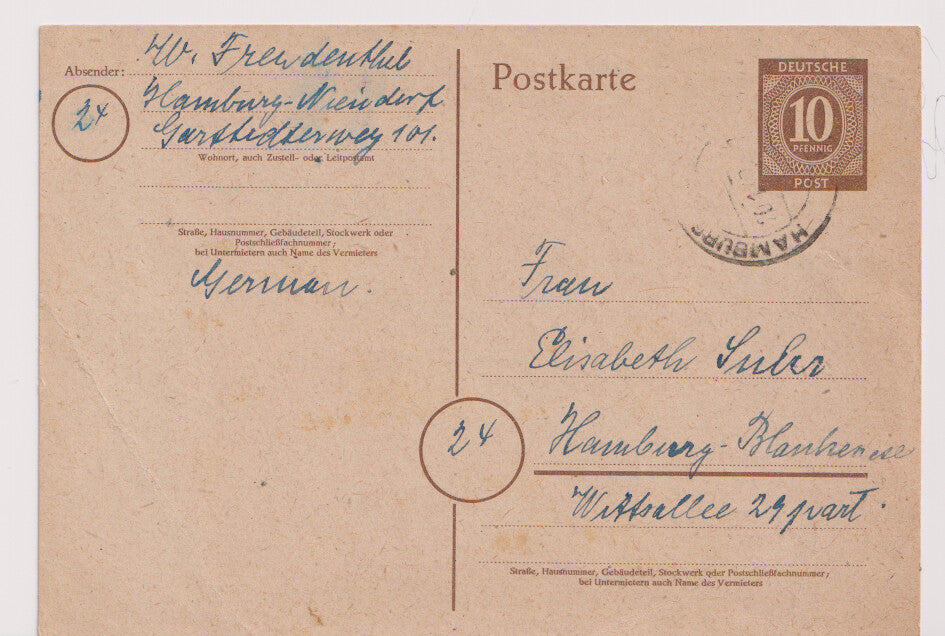 Absender: W. Freudenthal
Hamburg-Niendorf
24
Garstedterweg 101.
Wohnort, auch Zustell- oder Leitpostamt
Straße, Hausnummer, Gebäudeteil, Stockwerk oder
Postschließfachnummer;
bei Untermietern auch Name des Vermieters
German.
Postkarte
DEUTSCHE
10
PFENNIG
POST
HAMBURG
Frau
Elisabeth Suhr
24
Hamburg-Blankenese
Wittsallee 29 part.
Straße, Hausnummer, Gebäudeteil, Stockwerk oder Postschließfachnummer;
bei Untermietern auch Name des Vermieters